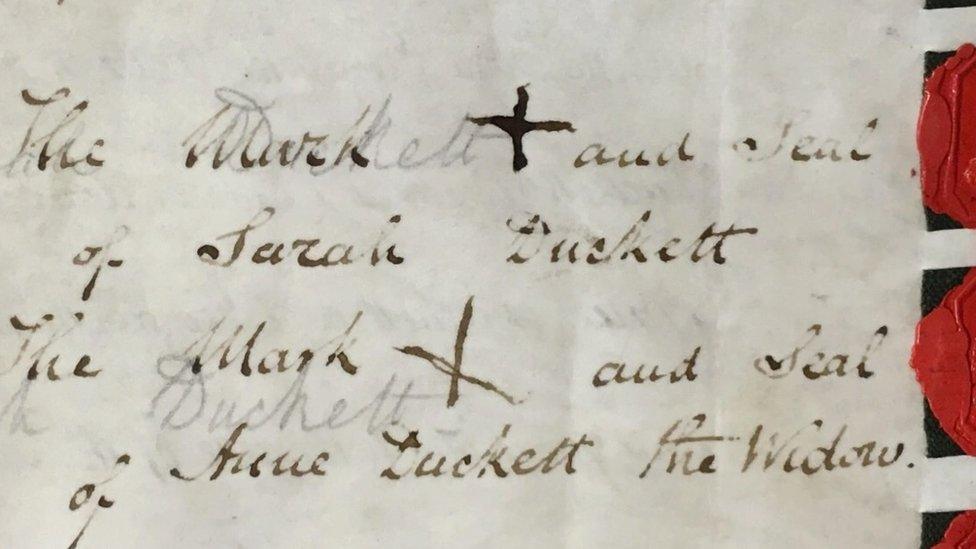 The Mark + and Seal
Duckett
of Sarah Duckett
The Mark + and Seal
Duckett
of Anne Duckett the Widow.